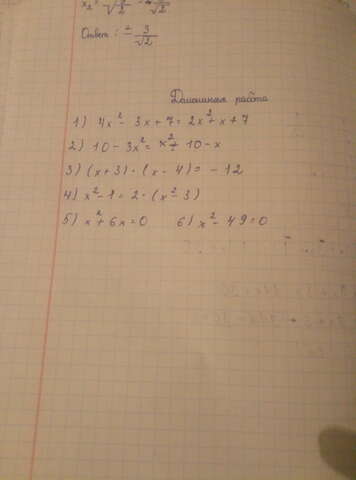 Ответ: ± 3/√2
Домашняя работа
1) 4x² - 3x + 7 = 2x² + x + 7
2) 10 - 3x² = x² + 10 - x
3) (x + 3) · (x - 4) = - 12
4) x² - 1 = 2 · (x² - 3)
5) x² + 6x = 0 6) x² - 49 = 0